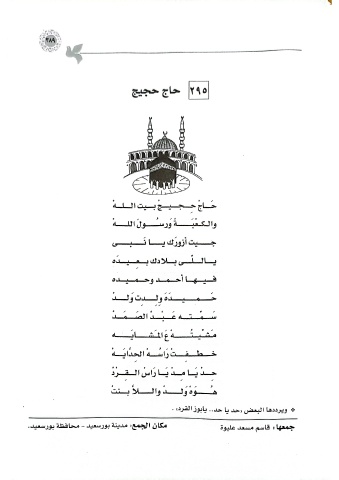 ٢٨٩
٢٩٥ حاج حجيج
حَاجْ حِجِيجْ بيت اللهْ
والكَعْبَةْ وَرسُولَ اللهْ
جيت أزورَك يا نَبِى
ياللِّى بلادك بعِيدَه
فيها أحمد وحميده
حَمِيدَةْ وِلِدِتْ وَلَدْ
سَمِّتُه عَبْدْ الصَّمَدْ
مَشِّيتُهْ عَ المَشَّايَهْ
خَطَفِتْ رَاسُهْ الحِدَّايَهْ
حِدْ يَا مِدْ يَا رَاسْ القِرْدْ
هُوَّهْ وَلَدْ واللاَّ بِنْتْ
* ويرددها البعض: «حد يا حد.. يابوز القرد» .
جمعها: قاسم مسعد عليوة مكان الجمع: مدينة بورسعيد - محافظة بورسعيد.